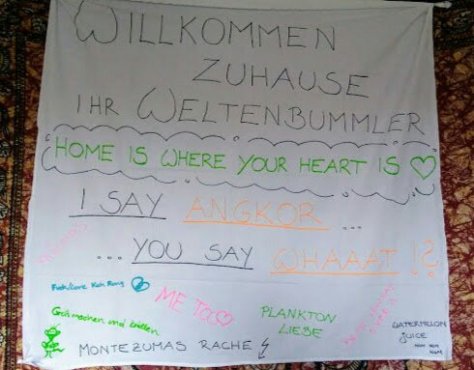 WILLKOMMEN
ZUHAUSE
IHR WELTENBUMMLER
HOME IS WHERE YOUR HEART IS
I SAY ANGKOR ...
... YOU SAY WHAAAT !?
Koh Rong
ME TOO
PLANKTON
LIEBE
WATERMELON
JUICE
NOM NOM
NOM
MONTEZUMAS RACHE